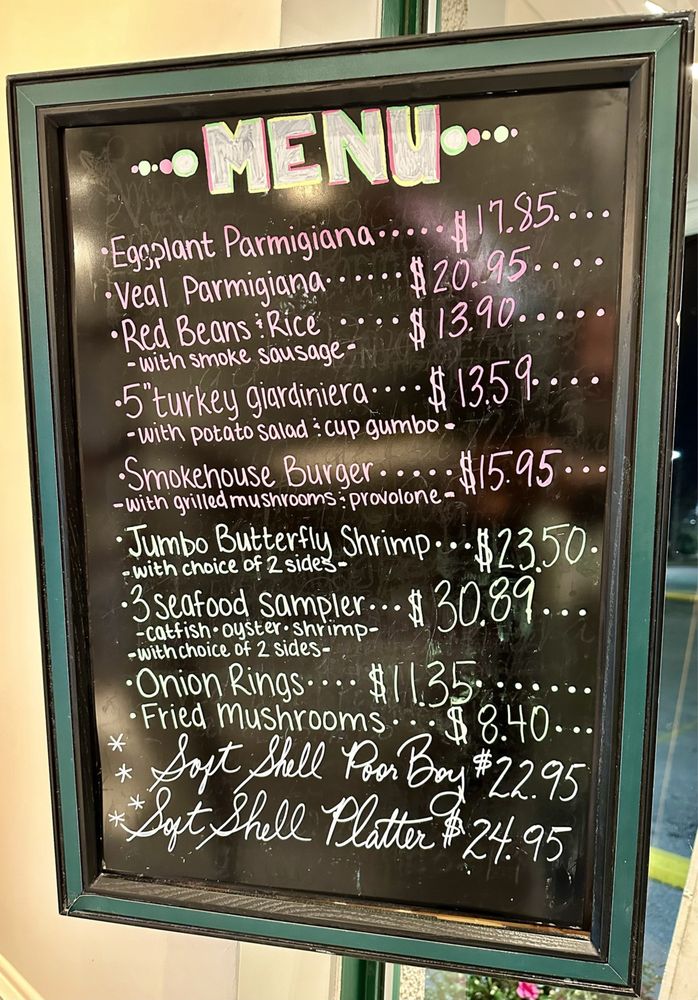 MENU
·Eggplant Parmigiana······$17.85....
·Veal Parmigiana·······$20.95....
·Red Beans & Rice ····$13.90.....
-with smoke sausage-
·5"turkey giardiniera····$13.59....
-with potato salad & cup gumbo-
·Smokehouse Burger·····$15.95...
-with grilled mushrooms & provolone-
·Jumbo Butterfly Shrimp···$23.50.
-with choice of 2 sides-
·3 seafood sampler...$30.89...
-catfish·oyster·shrimp-
-with choice of 2 sides-
·Onion Rings....$11.35.......
·Fried Mushrooms...$8.40...
** Soft Shell Poor Boy $22.95
** Soft Shell Platter $24.95